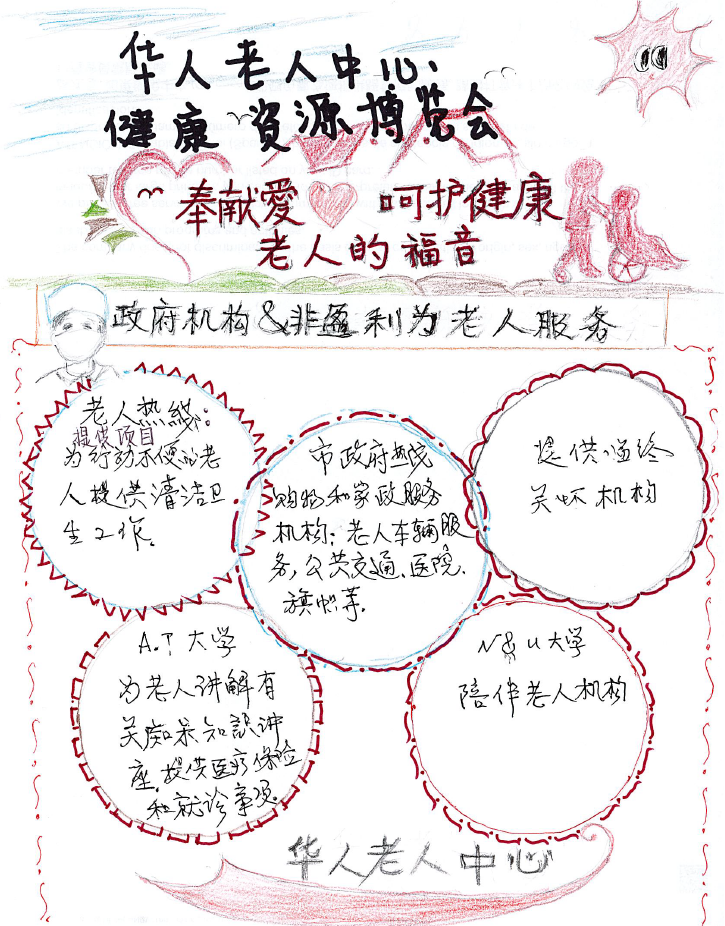 华人老人中心
健康資源博览会
奉献愛 呵护健康
老人的福音
政府机构&非盈利为老人服务
老人热线:
提供项目
为行动不便的老
人提供清洁卫
生工作。
市政府热线
购物和家政服务
机构:老人车辆服
务,公共交通、医院、
旗帜等.
提供临终
关怀机构
A.T 大学
为老人讲解有
关痴呆知識讲
座.提供医疗保险
和就诊事项.
N&U大学
陪伴老人机构
华人老人中心